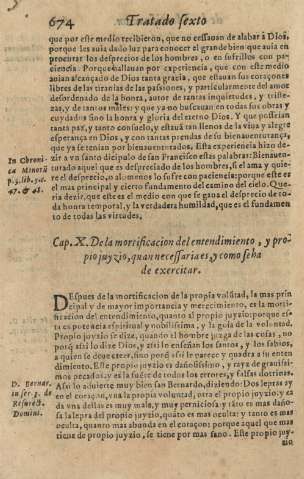 674 Tratado sexto
que por este medio recibieron, que no cessauan de alabar à Dios,
porque les auia dado luz para conocer el grande bien que auia en
procurar los desprecios de los hombres, o en sufrillos con pa-
ciencia. Porque hallauan por experiencia, que con este medio
auian alcançado de Dios tanta gracia, que estauan sus coraçones
libres de las tiranias de las passiones, y particularmente del amor
desordenado de la honra, autor de tantas inquietudes, y triste-
zas, y de tantos males: y que ya no buscauan en todas sus obras y
cuydados sino la honra y gloria del eterno Dios. Y que posseian
tanta paz, y tanto consuelo, y estauã tan llenos de la viua y alegre
esperança en Dios, y con tantas prendas de su bienauenturança,
que ya se tenian por bienauenturados. Esta experiencia hizo de-
zir a vn santo dicipulo de san Francisco estas palabras: Bienauen-
turado aquel que es despreciado de los hombres, si el ama y quie-
re el desprecio, o alomenos lo sufre con paciencia: porque este es
el mas principal y cierto fundamento del camino del cielo. Que-
ria dezir, que este es el medio con que se gana el desprecio de to-
da honra temporal, y la verdadera humildad, que es el fundamen-
to de todas las virtudes.
In Chroni-
ca Minorũ
p. 3. lib. 5. c.
47. & 48.
Cap. X. De la mortificacion del entendimiento, y pro-
pio juyzio, quan necessaria es, y como se ha
de exercitar.
DEspues de la mortificacion de la propia volũtad, la mas prin
cipal y de mayor importancia y merecimiento, es la morti-
ficacion del entendimiento, quanto al propio juyzio: porque es-
ta es potencia espiritual y nobilissima, y la guia de la voluntad.
Propio juyzio se dize, quando el hombre juzga de las cosas, no
porq̃ assi lo dize Dios, y assi lo enseñan los santos, y los sabios,
a quien se deue creer, sino porq̃ assi le parece y quadra a su enten
dimiento. Este propio juyzio es dañosissimo, y rayz de grauissi-
mos pecados, y es la fuente de todos los errores, y falsas dotrinas.
Assi lo aduierte muy bien san Bernardo, diziendo: Dos lepras ay
en el coraçon, vna la propia voluntad, otra el propio juyzio: y ca
da vna dellas es muy mala, y muy perniciosa: y tãto es mas daño-
sa la lepra del propio juyzio, quãto es mas oculta: y tanto es mas
oculta, quanto mas abunda en el coraçon: porque aquel que mas
tiene de propio juyzio, se tiene por mas sano. Este propio juy-
zio
D. Bernar.
in ser. 3. de
Resurect.
Domini.